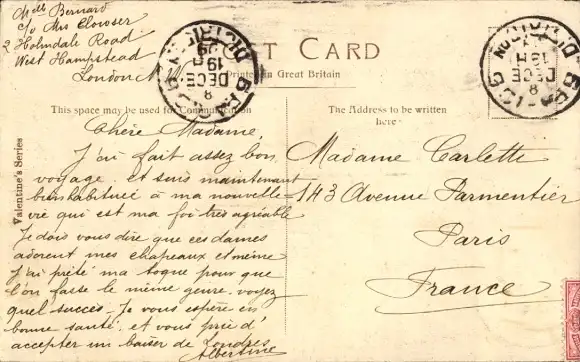 Melle Bernard
c/o Mrs Clowser
2 Holmdale Road
West Hampstead
London N.W.
POST CARD
Printed in Great Britain
This space may be used for Communication
The Address to be written
here
Valentine's Series
Chère Madame,
J'ai fait assez bon
voyage et suis maintenant
bien habituée à ma nouvelle
vie qui est ma foi très agréable
Je dois vous dire que ces dames
adorent mes chapeaux et même
j'ai prêté ma toque pour que
l'on fasse le même genre. voyez
quel succès. Je vous espère en
bonne santé et vous prie d'
accepter un baiser de Londres
Albertine
Madame Carlette
143 Avenue Parmentier
Paris
France
DISTRICT
19 H
DECE
8
DISTRICT
19 H
DECE
8